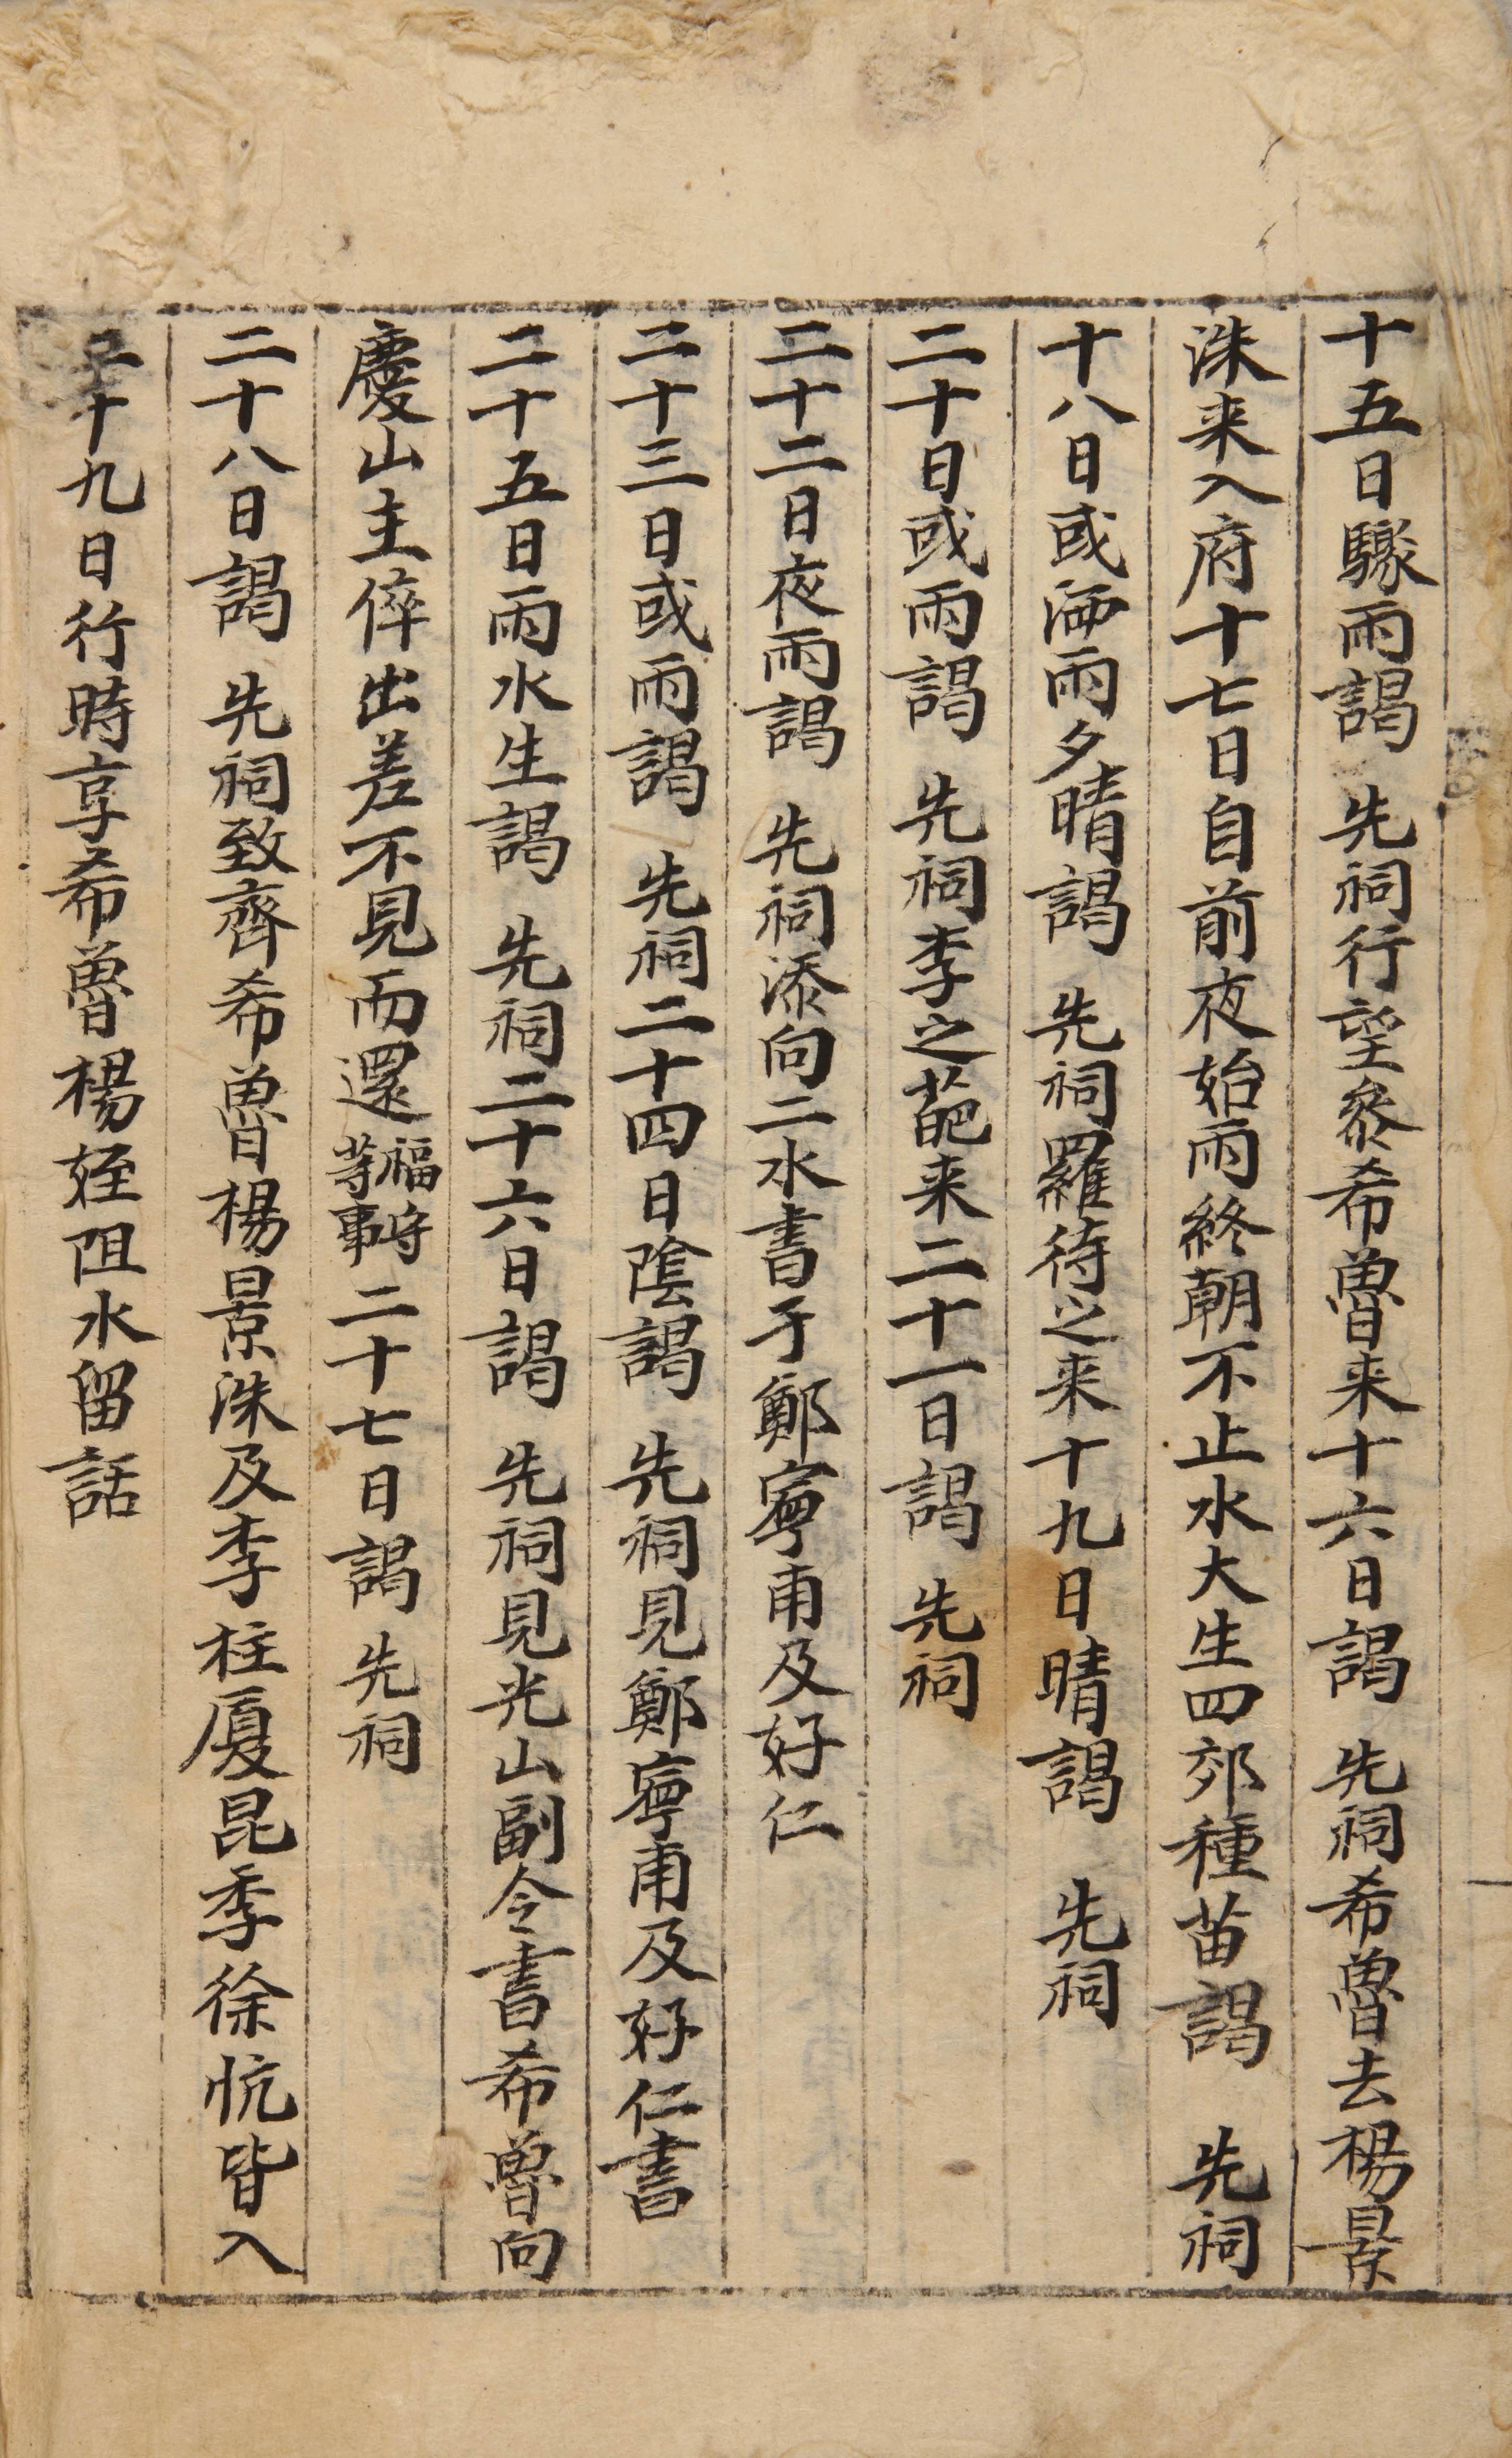 十五日驟雨謁　先祠行望參希魯来十六日謁　先祠希魯去楊景
洙来入府十七日自前夜始雨終朝不止水大生四郊種苗謁　先祠
十八日或洒雨夕晴謁　先祠羅待之来十九日晴謁　先祠
二十日或雨謁　先祠李之葩来二十一日謁　先祠
二十二日夜雨謁　先祠添向二水書于鄭寧甫及好仁
二十三日或雨謁　先祠二十四日陰謁　先祠見鄭寧甫及好仁書
二十五日雨水生謁　先祠二十六日謁　先祠見光山副令書希魯向
慶山主倅出差不見而還福崻等事二十七日謁　先祠
二十八日謁　先祠致齊希魯楊景洙及李柱厦昆季徐忼皆入
二十九日行時享希魯楊姪阻水留話